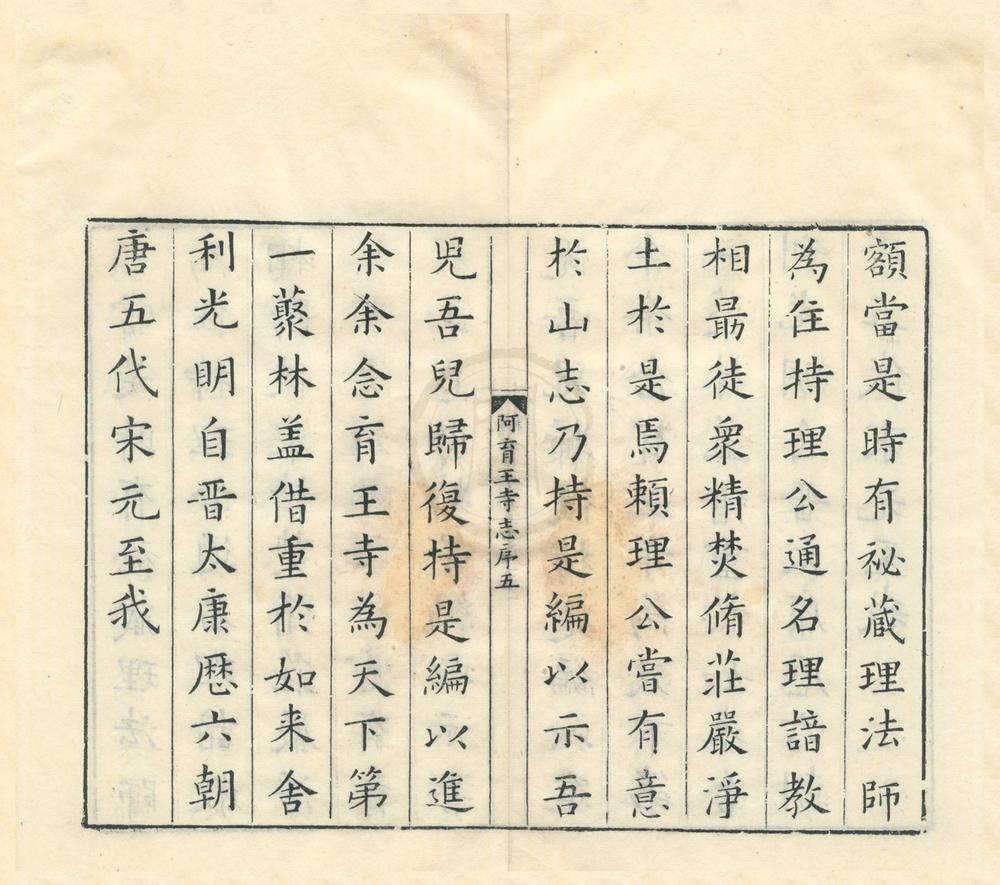 額當是時有祕蔵理法師
為住持理公通名理諳教
相最徒衆精焚脩莊嚴淨
土於是焉頼理公嘗有意
於山志乃持是編以示吾
兒吾兒歸復持是編以進
余余念育王寺為天下第
一藂林盖借重於如来舍
利光明自晋太康歴六朝
唐五代宋元至我
阿育王寺志序五